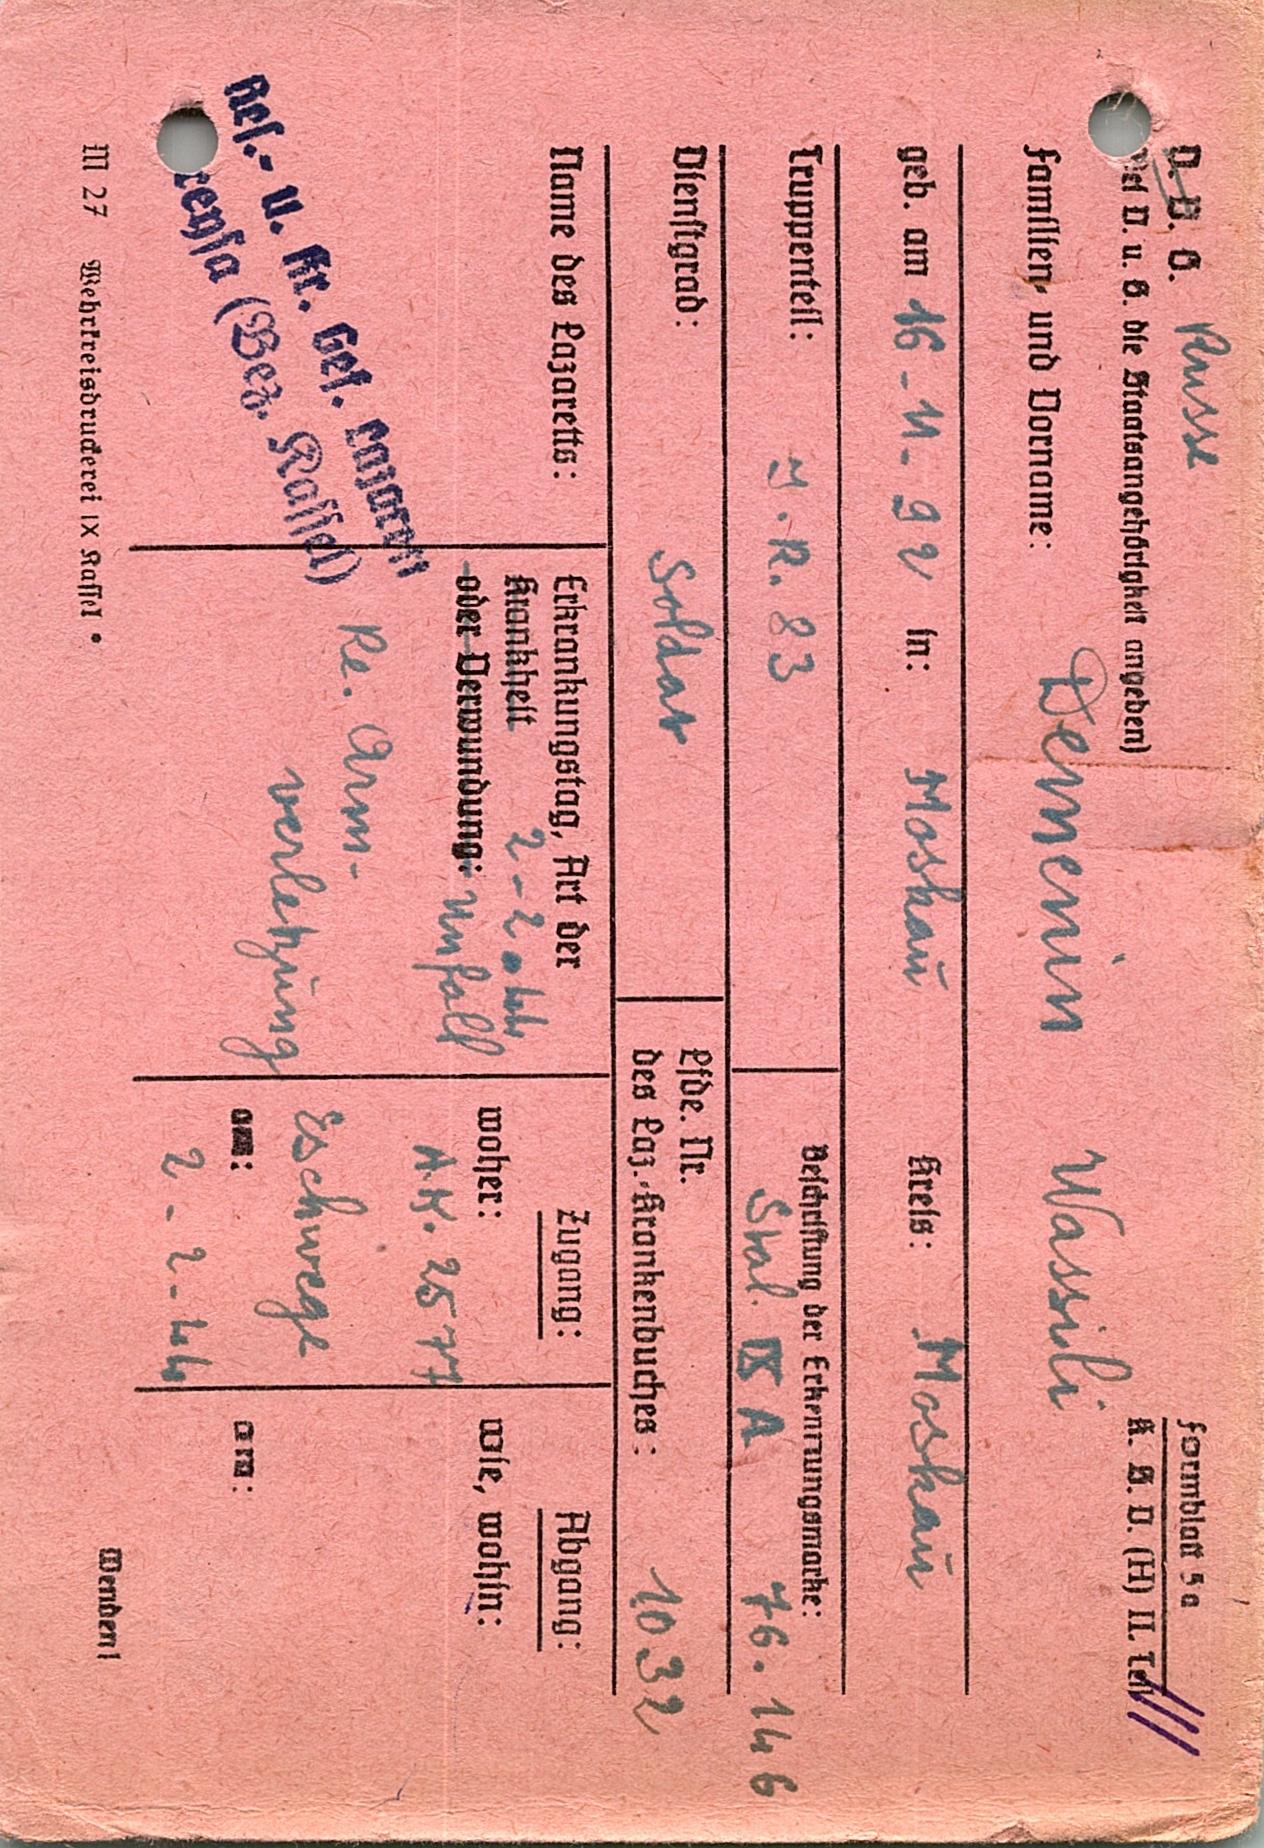 D. B. G. Russe
Bei D. u. G. die Staatsangehörigkeit angeben)
Formblatt 5a
K. S. D. (H) II. Teil
Familien- und Vorname: Demenin Wassili
geb. am 16-11-92 in: Moskau Kreis: Moskau
Truppenteil: J.R. 83
Beschriftung der Erkennungsmarke:
Stal. IX A 76.146
Dienstgrad: Soldat
Lfde. Nr.
des Laz.-Krankenbuches: 1032
Name des Lazaretts:
Res.- u. Kr. Gef. Lazarett
(Bez. Kassel)
Erkrankungstag, Art der
Krankheit 2-2-44
oder Verwundung: Unfall
Re. Arm-
verletzung
Zugang:
woher:
A.K. 2577
Eschwege
am:
2-2-44
Abgang:
wie, wohin:
am:
M 27 Wehrkreisdruckerei IX Kassel •
Wenden!